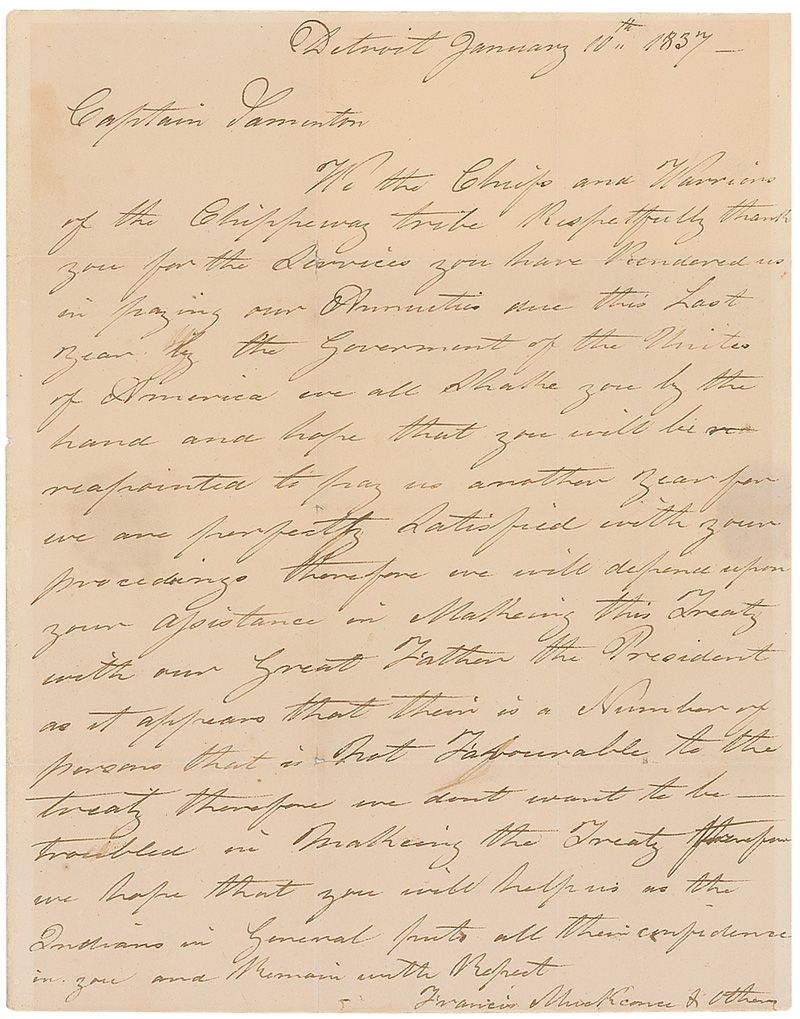 Detroit January 10th 1837
Captain Simonton
We the Chiefs and Warriors
of the Chippeway tribe Respetfully thank
you for the Services you have Rendered us
in paying our Annueties due this Last
year by the Goverment of the Unites
of America we all Shake you by the
hand and hope that you will be re
reapointed to pay us another year for
we are perfectly Satisfied with your
procedings therefore we will depend upon
your assistance in Makeing this Treaty
with our Great Father the President
as it appears that their is a Number of
persons that is Not Favourable to the
treaty therefore we dont want to be —
troubled in Makeing the Treaty therefore
we hope that you will help us as the
Indians in General puts all their confidence
in you and Remain with Respect
Francis & Others